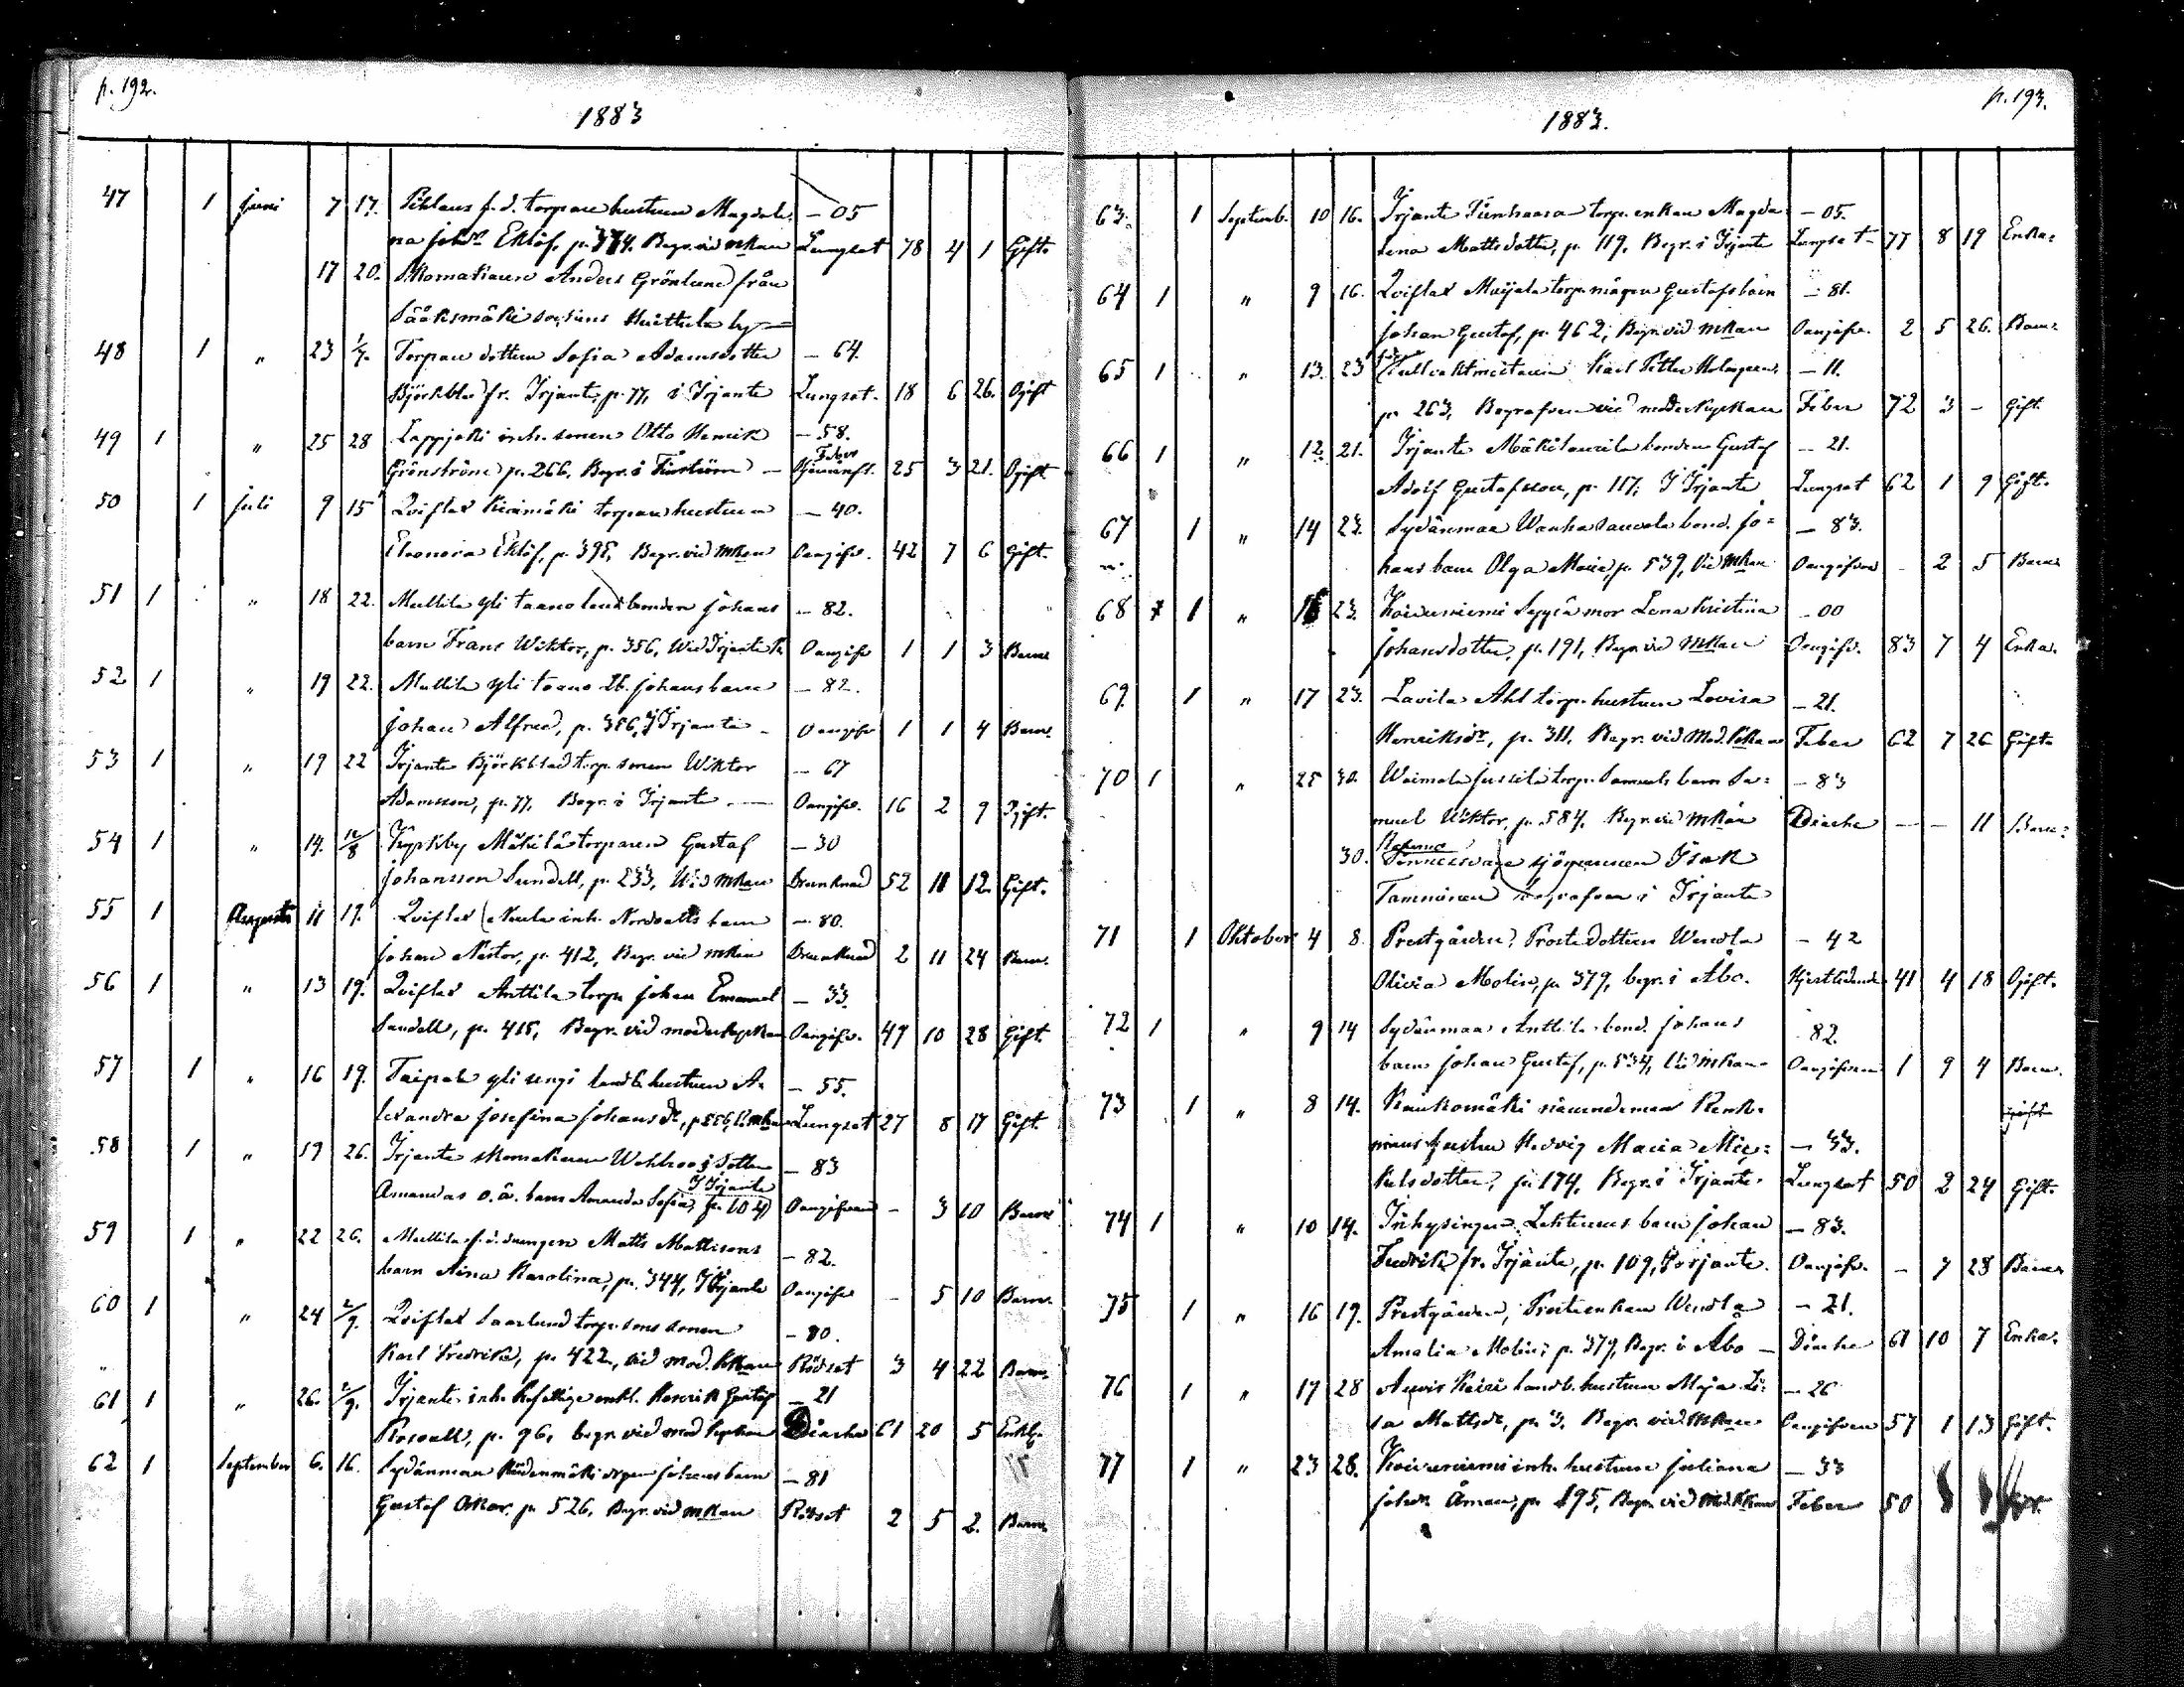 p. 192.
1883
47 1 Juni 7 17. Pihlaus f. d. torpare hustrun Magdale- – 05
na Johsdr Eklöf, p. 374. Begr. vid mkan Lungsot 78 4 1 Gift
17 20. Skomakaren Anders Grönlund från
Sääksmäki sockens Huittula by
48 1 " 23 1/7. Torpare dottern Sofia Adamsdotter – 64.
Björkblad fr. Irjante, p. 77, i Irjante Lungsot. 18 6 26. Ogift
49 1 " 25 28 Lappjoki inh. sonen Otto Henrik – 58.
Grönström p. 266. Begr. i Feber 25 3 21. Ogift
50 1 Juli 9 15 Qviflax Kivimäki torpare hustrun – 40.
Eleonora Eklöf, p. 398, Begr. vid mkan Oangifv. 42 7 6 Gift.
51 1 " 18 22. Mullila yli taano landbonden Johans – 82.
barn Frans Wiktor, p. 356, Wid Irjante k. Oangifv 1 1 3 Barn
52 1 " 19 22. Mullila yli taano lb. Johans barn – 82.
Johan Alfred, p. 356, I Irjante – Oangifv 1 1 4 Barn.
53 1 " 19 22 Irjante Björkblad torp. sonen Wiktor – 67
Adamsson, p. 77, Begr. i Irjante Oangifv. 16 2 9 Ogift.
54 1 " 14. 12/8 Kyrkby Mäkilä torparen Gustaf – 30
Johansson Sundell, p. 233, Vid mkan Drunknad 52 11 12. Gift.
55 1 Augusti 11 19. Qviflax Neula inh. Nordvalls barn – 80.
Johan Nestor, p. 412, Begr. vid mkan Drunknad 2 11 24 Barn.
56 1 " 13 19. Qviflax Anttila torp. Johan Emanuel – 33.
Sandell, p. 415, Begr. vid moderkyrkan Oangifv. 49 10 28 Gift.
57 1 " 16 19. Taipale yli sengi landb. hustrun A- – 55.
lexandra Josefina Johansdr, p. 556, Lungsot 27 8 17 Gift.
58 1 " 19 26. Irjante skomakaren Wahlroos dotter – 83
Amandas o. ä. barn Amanda Sofia, p. 104 I Irjante Oangifven – 3 10 Barn
59 1 " 22 26. Mullila f. d. drängen Matts Mattssons – 82.
barn Aina Karolina, p. 344, I Irjante Oangifv – 5 10 Barn.
60 1 " 24 2/9. Qviflax Saarlund torp. sons sonen – 80.
Karl Fredrik, p. 422, vid mod. kkan Rödsot 3 4 22 Barn.
61 1 " 26. 2/9. Irjante inh. enkl. Henrik Gustaf – 21
Rosvall, p. 96, begr. vid mod kyrkan Diarhe 61 20 5 Enkl.
62 1 September 6. 16. Sydänmaa Johans barn – 81
Gustaf Oskar, p. 526, Begr. vid mkan Rödsot 2 5 2. Barn.
p. 193.
1883.
63. 1 Septemb. 10 16. Irjante Tienhaara torp. enkan Magda – 05.
lena Mattsdotter, p. 119, Begr. i Irjante Lungsot 77 8 19 Enka.
64 1 " 9 16. Qviflax Maijala torp. mågen Gustafs barn – 81.
Johan Gustaf, p. 462, Begr. vid mkan Oangifv. 2 5 26. Barn.
65 1 " 13. 23 Tullvaktmästaren Karl Petter Holmgren, – 11.
p. 263, Begrafven vid moderkyrkan Feber 72 3 – Gift.
66 1 " 12. 21. Irjante Mäkilaurila bonden Gustaf – 21.
Adolf Gustafsson, p. 117, I Irjante Lungsot 62 1 9 Gift.
67 1 " 14 23. Sydänmaa Wanha Sauvola bond. Jo- – 83.
hans barn Olga Maria, p. 539, Vid mkan Oangifven – 2 5 Barn
68 1 " 23. Koivuniemi mor Lena Kristina – 00
Johansdotter, p. 191, Begr. vid mkan Oangifv. 83 7 4 Enka.
69. 1 " 17 23. Lavila Ahl torp. hustrun Lovisa – 21.
Henriksdr, p. 311, Begr. vid Mod. kkan Feber 62 7 26 Gift.
70 1 " 25 30. Waimala Jussila torp. Samuels barn Sa- – 83
muel Wiktor, p. 584, Begr. vid mkan Diarhe – – 11 Barn.
30. sjömannen Isak
Tamminen begrafven i Irjante
71 1 Oktober 4 8. Prestgården, Prostedottern Wendla – 42
Olivia Molin, p. 379, begr. i Åbo. Hjertlidande 41 4 18 Ogift.
72 1 " 9 14 Sydänmaa Anttila bond. Johans 82.
barn Johan Gustaf, p. 534, Vid mkan Oangifven 1 9 4 Barn.
73 1 " 8 14. Kaukomäki nämndeman Renk-
hustru Hedvig Maria Mic- – 33.
kelsdotter, p. 174, Begr. i Irjante. Lungsot 50 2 24 Gift.
74 1 " 10 14. Inhysingen Lehtinens barn Johan – 83.
Fredrik fr. Irjante, p. 109, I Irjante. Oangifv. – 7 28 Barn
75 1 " 16 19. Prestgården, Prostenkan Wendla – 21.
Amalia Molin, p. 379, Begr. i Åbo – Diarhe 61 10 7 Enka.
76 1 " 17 28 Auvis Keiri landb. hustrun Maja Li- – 26
sa Mattsdr, p. 3. Begr. vid mkan Oangifven 57 1 13 Gift.
77 1 " 23 28. Koivuniemi inh. hustrun Juliana – 33
Johdr. Åman, p. 195, Begr. vid mod. kkan Feber 50